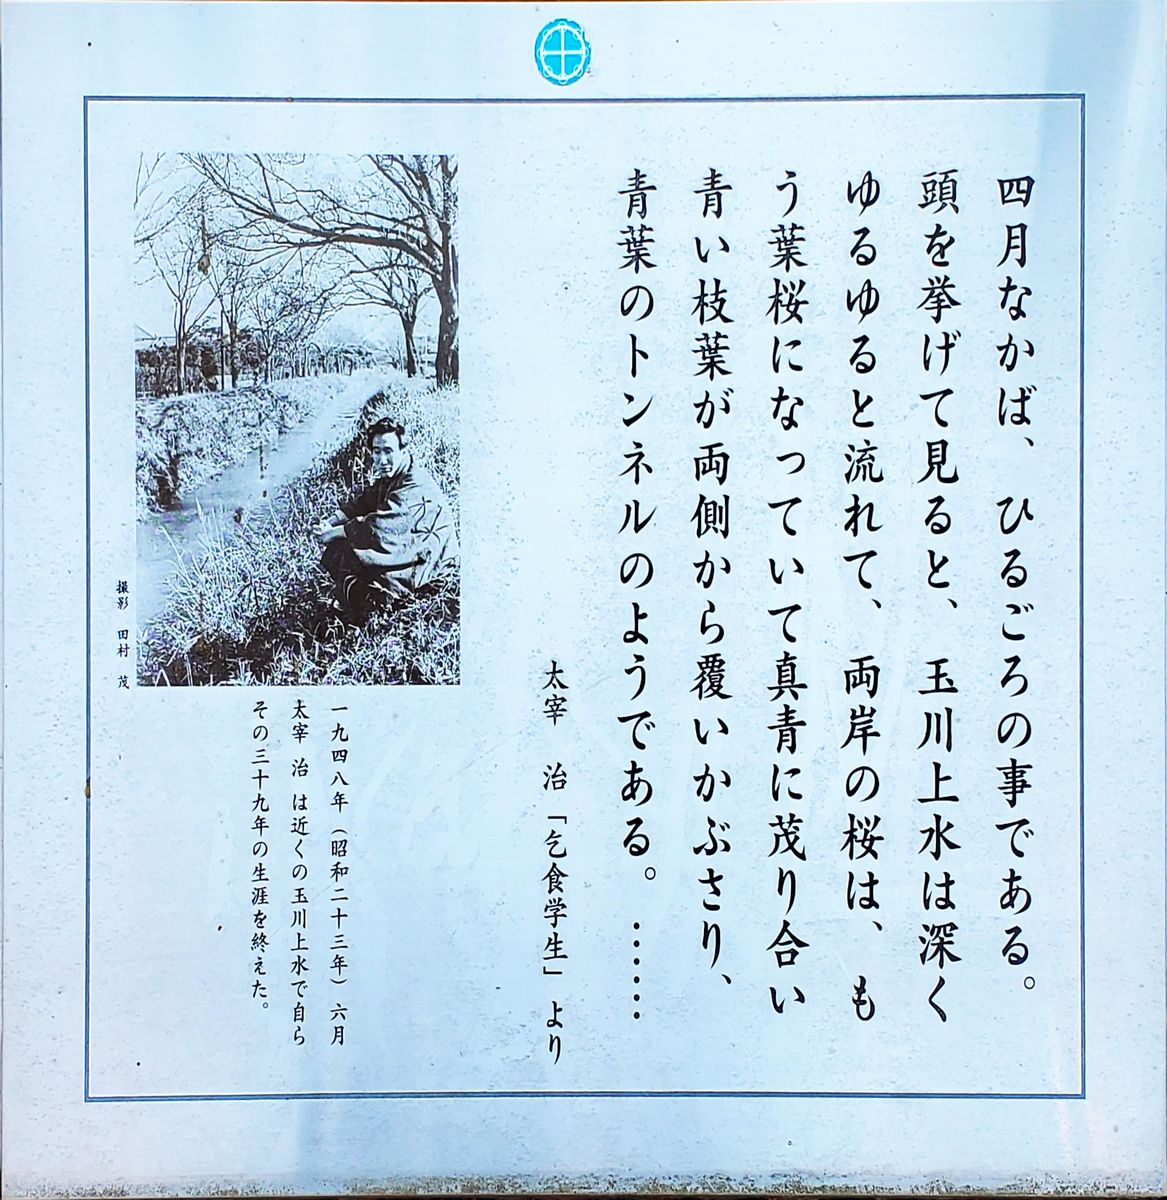 四月なかば、ひるごろの事である。
頭を挙げて見ると、玉川上水は深く
ゆるゆると流れて、両岸の桜は、も
う葉桜になっていて真青に茂り合い
青い枝葉が両側から覆いかぶさり、
青葉のトンネルのようである。……
太宰 治「乞食学生」より
一九四八年(昭和二十三年)六月
太宰 治 は近くの玉川上水で自ら
その三十九年の生涯を終えた。
撮影 田村 茂